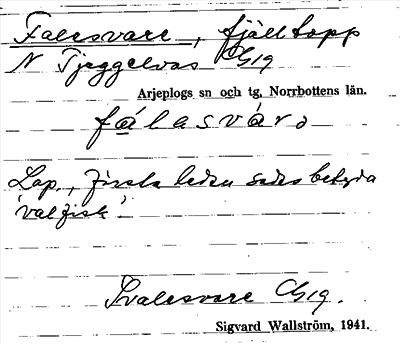 Falesvare, fjälltopp
N Tjeggelvas Cb19
Arjeplogs sn och tg. Norrbottens län.
fálasvárə
Lap., första leden sades betyda
'valfisk'
Svalesvare Cb19.
Sigvard Wallström, 1941.